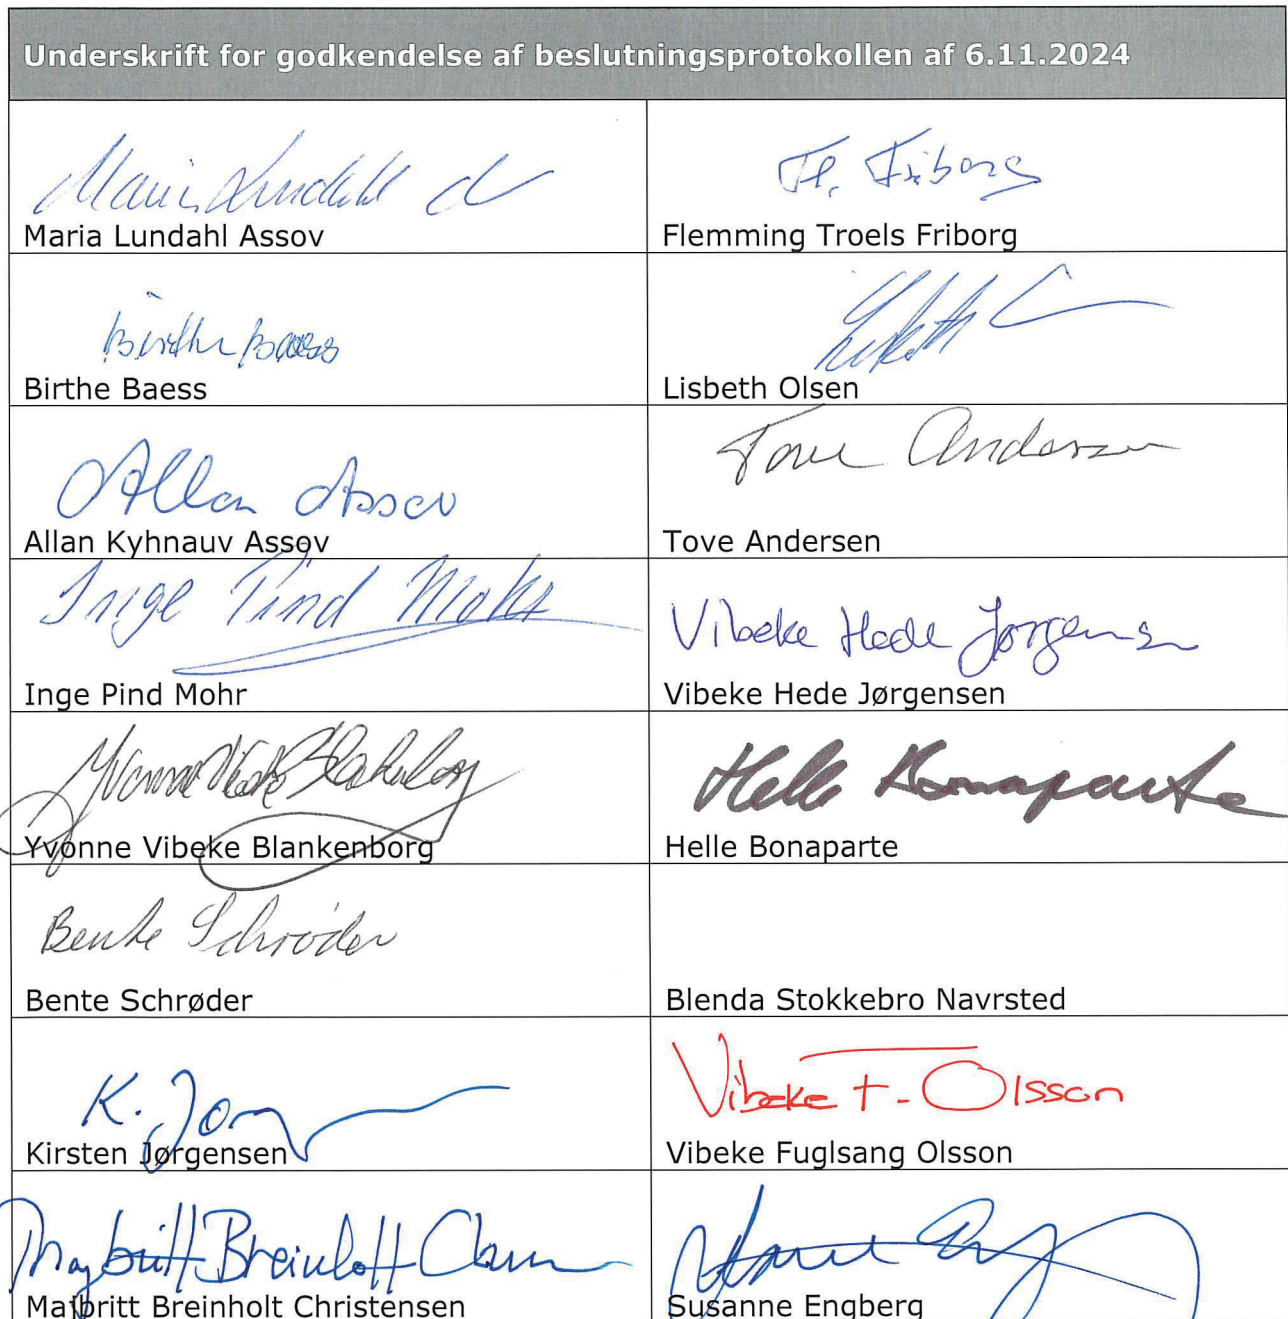 Underskrift for godkendelse af beslutningsprotokollen af 6.11.2024
Maria Lundahl
Maria Lundahl Assov
Fl. Friborg
Flemming Troels Friborg
Birthe Baess
Birthe Baess
Lisbeth
Lisbeth Olsen
Allan Assov
Allan Kyhnauv Assov
Tove Andersen
Tove Andersen
Inge Pind Mohr
Inge Pind Mohr
Vibeke Hede Jørgensen
Vibeke Hede Jørgensen
Yvonne Vibeke Blankenborg
Yvonne Vibeke Blankenborg
Helle Bonaparte
Helle Bonaparte
Bente Schrøder
Bente Schrøder
Blenda Stokkebro Navrsted
K.
Kirsten Jørgensen
Vibeke F. Olsson
Vibeke Fuglsang Olsson
Maybritt Breinholt
Majbritt Breinholt Christensen
Susanne Engberg